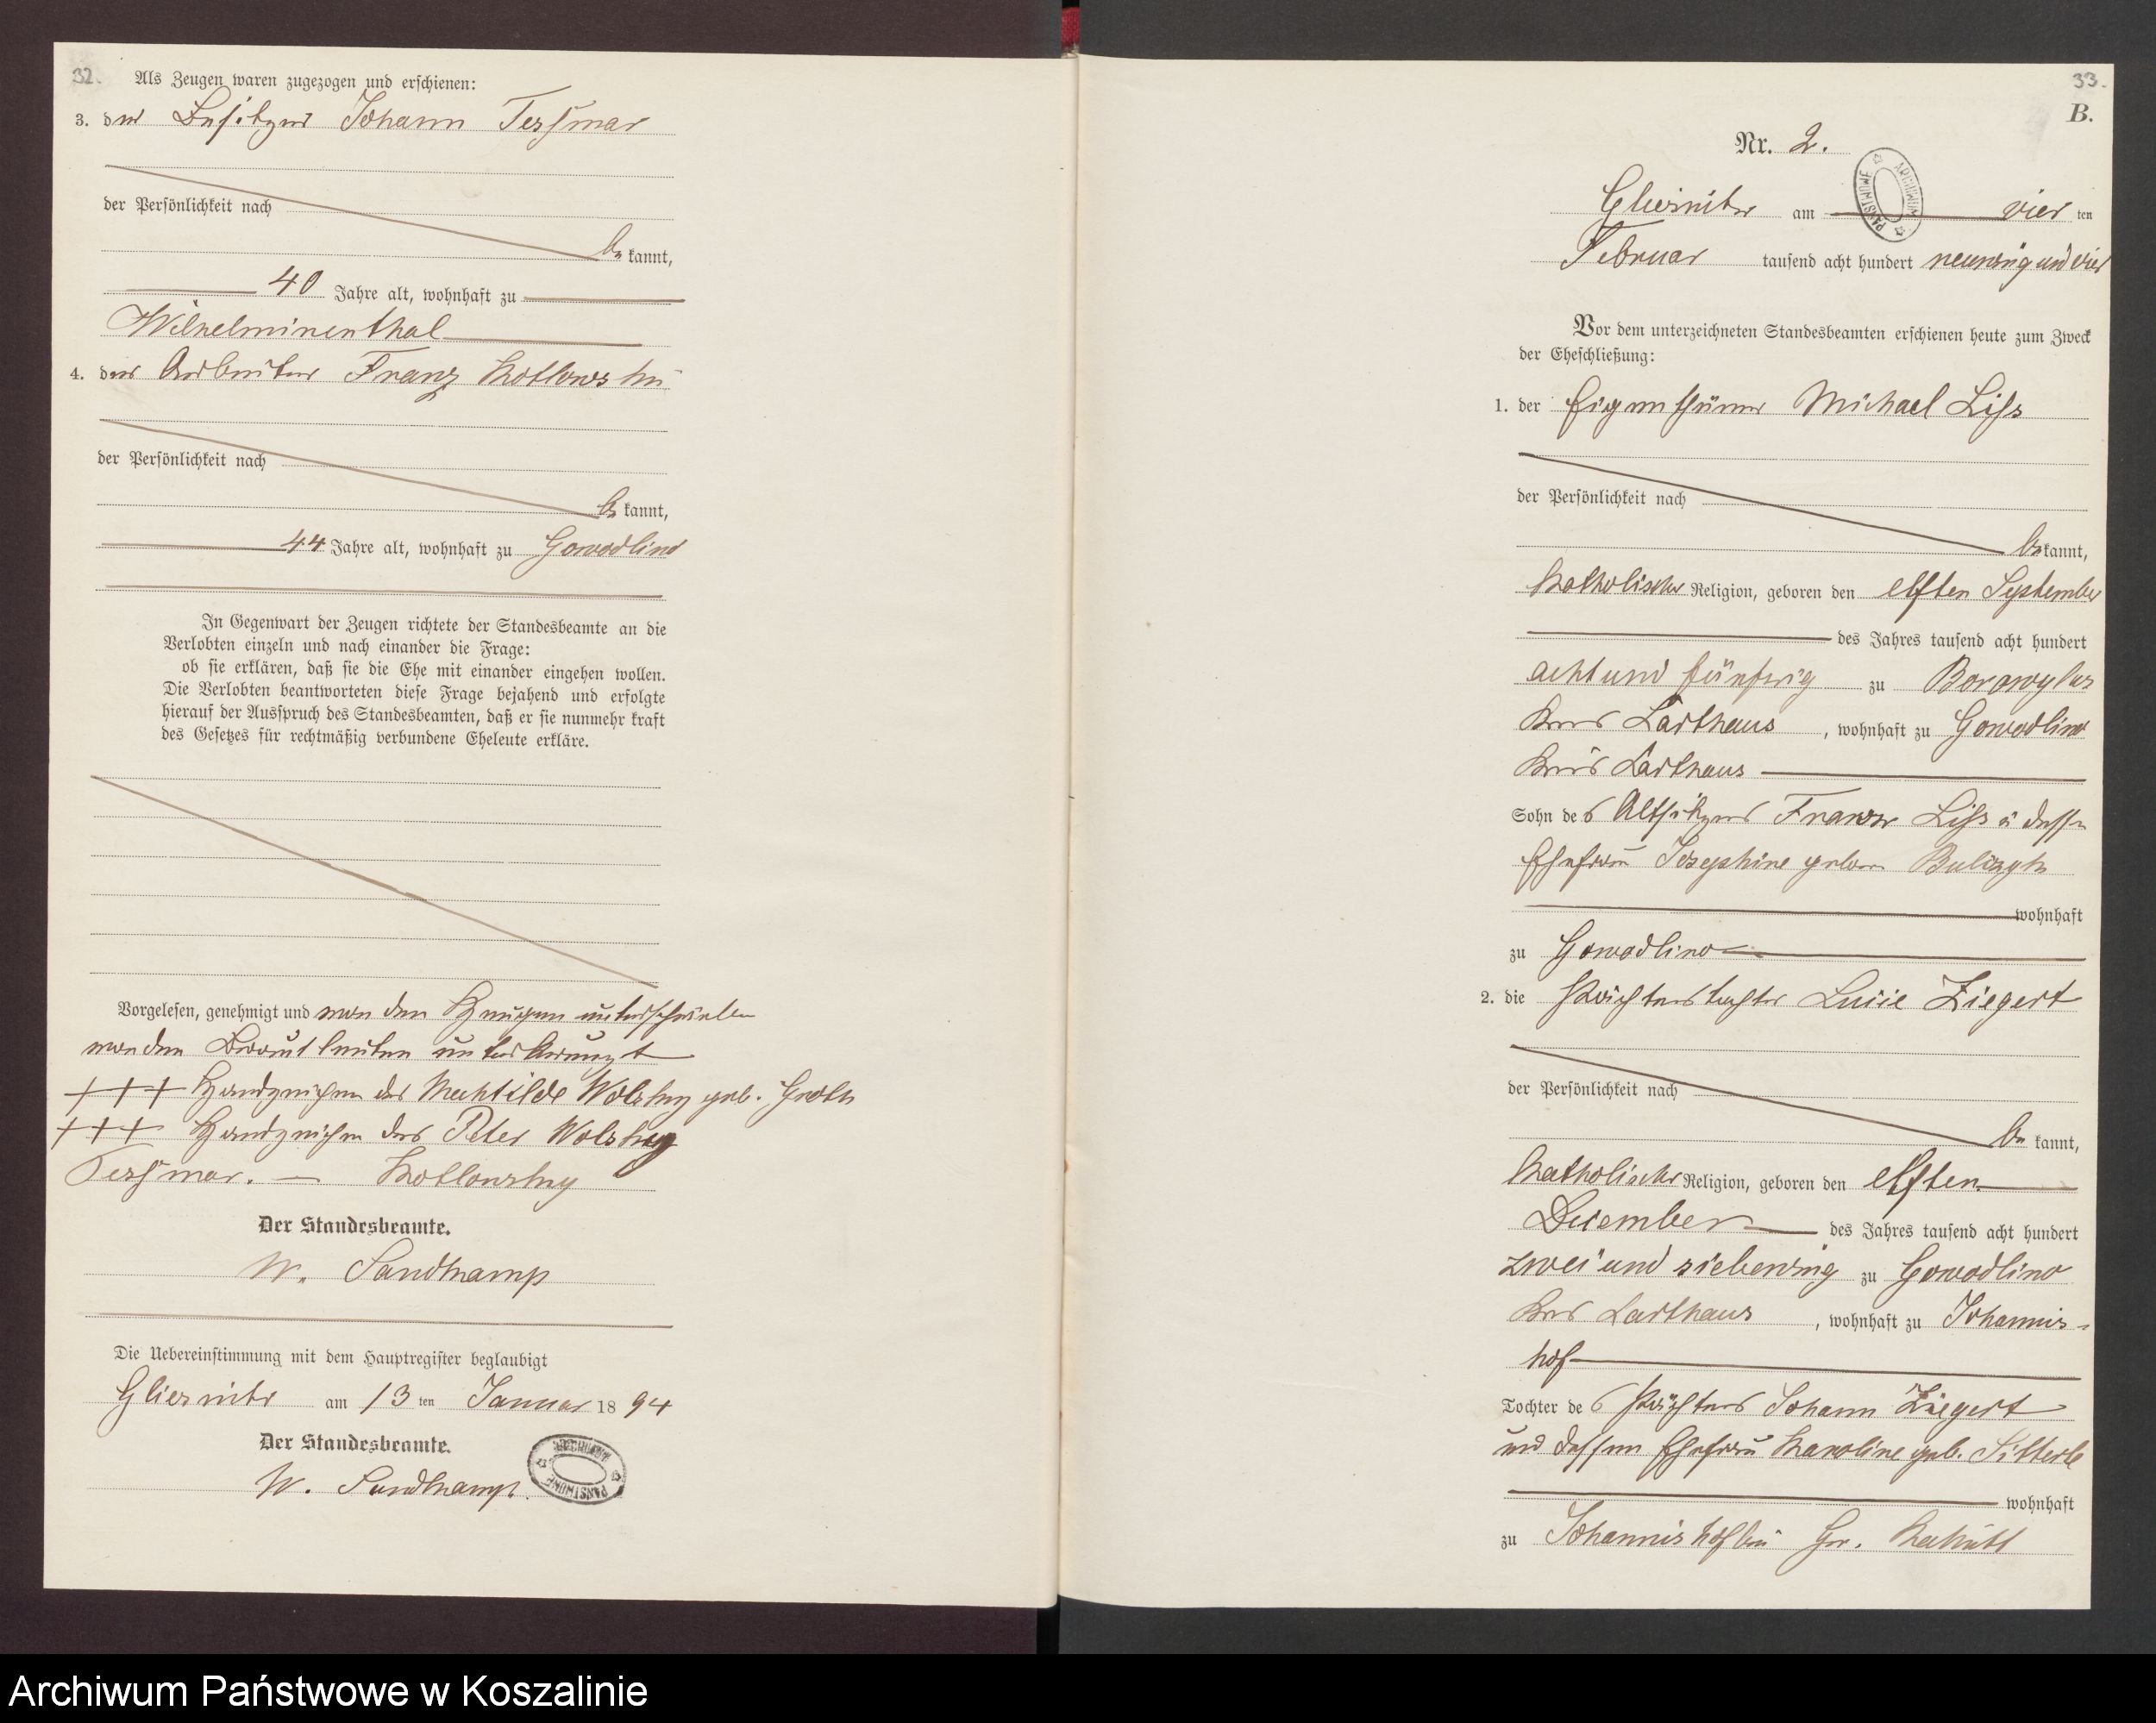 32.
Als Zeugen waren zugezogen und erschienen:
3. der Besitzer Johann Tessmar
der Persönlichkeit nach
be kannt,
40 Jahre alt, wohnhaft zu
Wilhelminenthal
4. der Arbeiter Franz Kotlowski
der Persönlichkeit nach
be kannt,
44 Jahre alt, wohnhaft zu Gowodlino
In Gegenwart der Zeugen richtete der Standesbeamte an die
Verlobten einzeln und nach einander die Frage:
ob sie erklären, daß sie die Ehe mit einander eingehen wollen.
Die Verlobten beantworteten diese Frage bejahend und erfolgte
hierauf der Ausspruch des Standesbeamten, daß er sie nunmehr kraft
des Gesetzes für rechtmäßig verbundene Eheleute erkläre.
Vorgelesen, genehmigt und von den Zeugen unterschrieben
von den Brautleuten unterkreuzt
+++ Handzeichen der Mechtilde Wolsky geb.
+++ Handzeichen des Peter Wolsky
Tessmar. — Kotlowsky
Der Standesbeamte.
W. Sandkamp
Die Uebereinstimmung mit dem Hauptregister beglaubigt
Gliesnitz am 13 ten Januar 18 94
Der Standesbeamte.
W. Sandkamp.
ARCHIWUM PAŃSTWOWE
33.
B.
Nr. 2.
ARCHIWUM PAŃSTWOWE
Gliesnitz am vier ten
Februar tausend acht hundert neunzig und vier
Vor dem unterzeichneten Standesbeamten erschienen heute zum Zweck
der Eheschließung:
1. der Eigenthümer Michael Liss
der Persönlichkeit nach
be kannt,
katholischer Religion, geboren den elften September
des Jahres tausend acht hundert
acht und fünfzig zu
Kreis Carthaus, wohnhaft zu Gowodlino
Kreis Carthaus
Sohn des Altsitzers Franz Liss u dessen
Ehefrau Josephine geboren
wohnhaft
zu Gowodlino
2. die Pächterstochter Lucie Ziegert
der Persönlichkeit nach
be kannt,
katholischer Religion, geboren den elften
December des Jahres tausend acht hundert
zwei und siebenzig zu Gowodlino
Kreis Carthaus, wohnhaft zu Johannis-
hof
Tochter des Pächters Johann Ziegert
und dessen Ehefrau Karoline geb.
wohnhaft
zu Johannishof bei Gr.
Archiwum Państwowe w Koszalinie